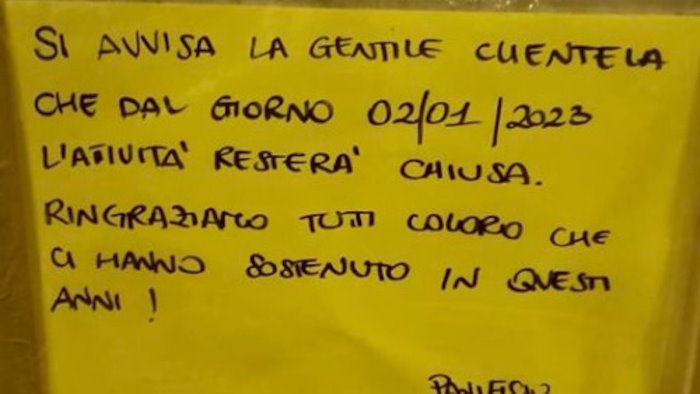 SI AVVISA LA GENTILE CLIENTELA
CHE DAL GIORNO 02/01/2023
L'ATIVITA' RESTERA' CHIUSA.
RINGRAZIAMO TUTTI COLORO CHE
CI HANNO SOSTENUTO IN QUESTI
ANNI!